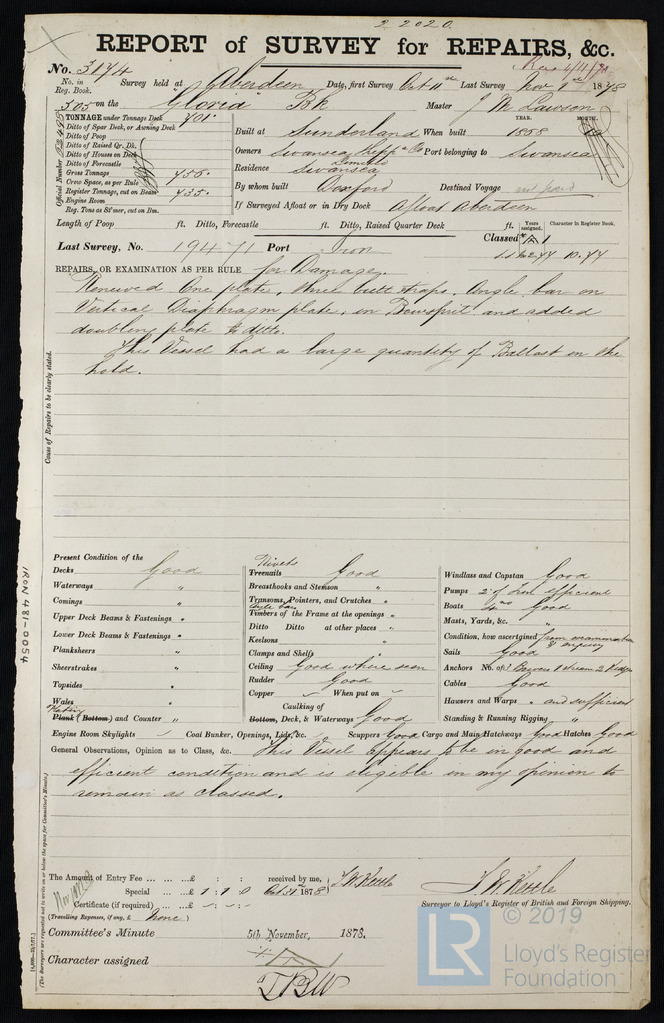 2 2020.
REPORT of SURVEY for REPAIRS, &c.
No. 3174 Rec 4/11/78
No. in Reg. Book. Survey held at Aberdeen Date, first Survey Oct 11th Last Survey Nov 1st 1878
305 on the "Gloria" Bk Master J M Lawson
TONNAGE under Tonnage Deck 701.
Ditto of Spar Deck, or Awning Deck
Ditto of Poop
Ditto of Raised Qr. Dk.
Ditto of Houses on Deck
Ditto of Forecastle
Gross Tonnage 756.
Crew Space, as per Rule
Register Tonnage, cut on Beam 735.
Engine Room
Reg. Tons as St'mer, cut on Bm.
Official Number
YEAR. MONTH.
Built at Sunderland When built 1858 10
Owners Swansea Shipp'g Co Limited Port belonging to Swansea
Residence Swansea
By whom built Doxford Destined Voyage not fixed
If Surveyed Afloat or in Dry Dock Afloat Aberdeen
Length of Poop ft. Ditto, Forecastle ft. Ditto, Raised Quarter Deck ft.
Years assigned. Character in Register Book.
Classed 1
Last Survey, No. 19471 Port Iron
10.77
REPAIRS, OR EXAMINATION AS PER RULE for Damage.
Renewed One plate, three butt straps, Angle bar on
Vertical Diaphragm plate, in Bowsprit and added
doubling plate to ditto.
This Vessel had a large quantity of Ballast in the
hold.
Cause of Repairs to be clearly stated.
IRON 481-0054
Present Condition of the
Decks Good
Waterways "
Comings "
Upper Deck Beams & Fastenings "
Lower Deck Beams & Fastenings "
Planksheers "
Sheerstrakes "
Topsides "
Wales "
Plating
Plank (Bottom) and Counter "
Rivets
Treenails Good
Breasthooks and Stemson "
Transoms, Pointers, and Crutches "
Angle bars
Timbers of the Frame at the openings "
Ditto Ditto at other places "
Keelsons "
Clamps and Shelfs "
Ceiling Good where seen
Rudder Good
Copper – When put on –
Caulking of
Bottom, Deck, & Waterways Good
Windlass and Capstan Good
Pumps 2 of Iron efficient
Boats Good
Masts, Yards, &c. "
Condition, how ascertained from examination & enquiry
Sails Good
Anchors No. of 3 Bowers 1 Stream 2 Kedges
Cables Good
Hawsers and Warps " and sufficient
Standing & Running Rigging "
Engine Room Skylights – Coal Bunker, Openings, Lids, &c. – Scuppers Good Cargo and Main Hatchways Good Hatches Good
General Observations, Opinion as to Class, &c. This Vessel appears to be in good and
efficient condition and is eligible in my opinion to
remain as classed.
(The Surveyors are requested not to write on or below the space for Committee's Minute.)
The Amount of Entry Fee ... ... £ : : received by me, J.W. Kettle
Special ... ... £ 1 : 1 : 0 Oct 31st 1878
Certificate (if required) ... £ – : – : –
(Travelling Expenses, if any, £ None)
J.W. Kettle
Surveyor to Lloyd's Register of British and Foreign Shipping.
Committee's Minute 5th November, 1878.
Character assigned
© 2019
LR Lloyd's Register
Foundation